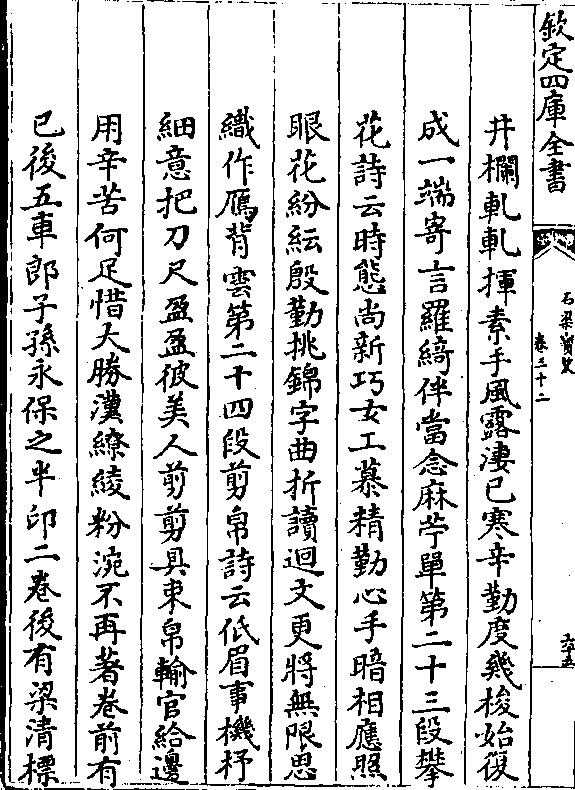 欽定四庫全書
石渠寶笈
卷三十二
六十五
井欄軋軋揮素手風露淒已寒辛勤度幾梭始復
成一端寄言羅綺伴當念麻苧單第二十三段攀
花詩云時態尚新巧女工慕精勤心手暗相應照
眼花紛紜殷勤挑錦字曲折讀迴文更將無限思
織作鴈背雲第二十四段剪帛詩云低眉事機杼
細意把刀尺盈盈彼美人剪剪具束帛輸官給邊
用辛苦何足惜大勝漢繚綾粉涴不再著卷前有
已後五車郎子孫永保之半印二卷後有梁清標